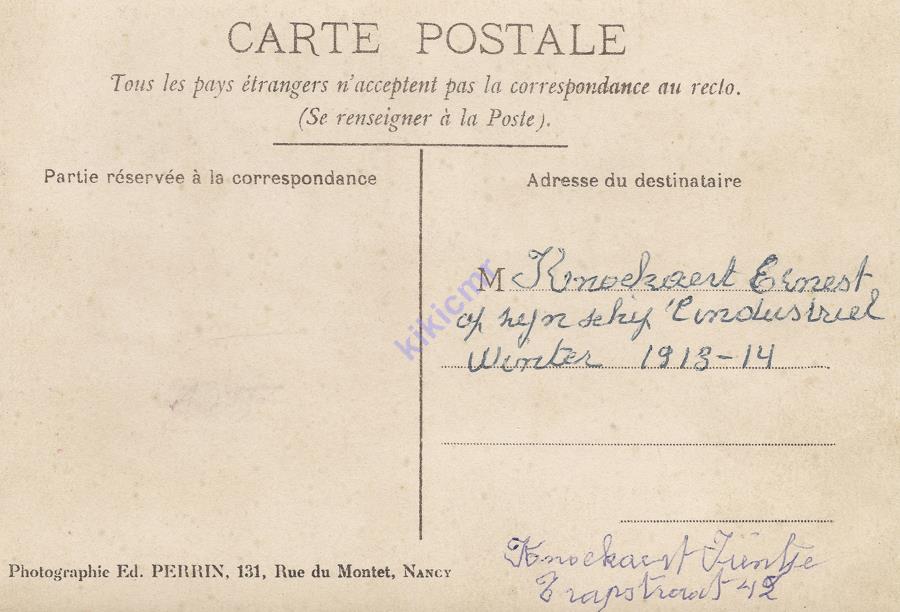 CARTE POSTALE
Tous les pays étrangers n'acceptent pas la correspondance au recto.
(Se renseigner à la Poste).
Partie réservée à la correspondance
Adresse du destinataire
M Knockaert Ernest
op zijn schip l'industriel
Winter 1913-14
kikicmr
Photographie Ed. PERRIN, 131, Rue du Montet, NANCY
Knockaert
Trapstraat 42